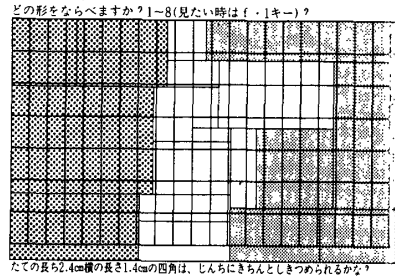 どの形をならべますか？1~8(見たい時はf・1キー)？
たての長さ2.4cm横の長さ1.4cmの四角は、じんちにきちんとしきつめられるかな？